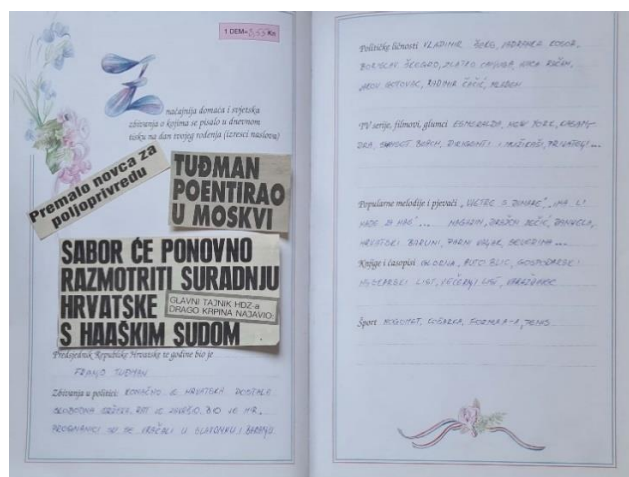 1 DEM= Kn
Značajnija domaća i svjetska
zbivanja o kojima se pisalo u dnevnom
tisku na dan svojeg rođenja (izresci naslova)
Premalo novca za
poljoprivredu
TUĐMAN
POENTIRAO
U MOSKVI
SABOR ĆE PONOVNO
RAZMOTRITI SURADNJU
HRVATSKE
GLAVNI TAJNIK HDZ-a
DRAGO KRPINA NAJAVIO
S HAAŠKIM SUDOM
Predsjednik Republike Hrvatske te godine bio je
FRANJO TUĐMAN
Zbivanja u politici: KONAČNO JE HRVATSKA POSTALA
SLOBODNA DRŽAVA, RAT JE ZAVRŠIO, BIO JE MIR,
PROGNANICI SU SE VRAĆALI U SLAVONIJU I BARANJU
Političke ličnosti VLADIMIR ŠEKS, JADRANKA KOSOR,
BORISLAV ŠKEGRO, ZLATKO CANJUGA, IVICA RAČAN,
RADIMIR ČAČIĆ,
TV serije, filmovi, glumci ESMERALDA, NEW YORK, KASAN-
DRA, SUNSET BEACH, DIJAMANTI PRIJATELJI...
Popularne melodije i pjevači
MAGAZIN, DRAŽEN ZEČIĆ, DANIJELA,
HRVATSKI BARUNI, PARNI VALJAK, SEVERINA ...
Knjige i časopisi GLORIA, AUTO BLIC, GOSPODARSKI
LIST, VEČERNJI LIST,
Šport NOGOMET, KOŠARKA, FORMULA-1, TENIS